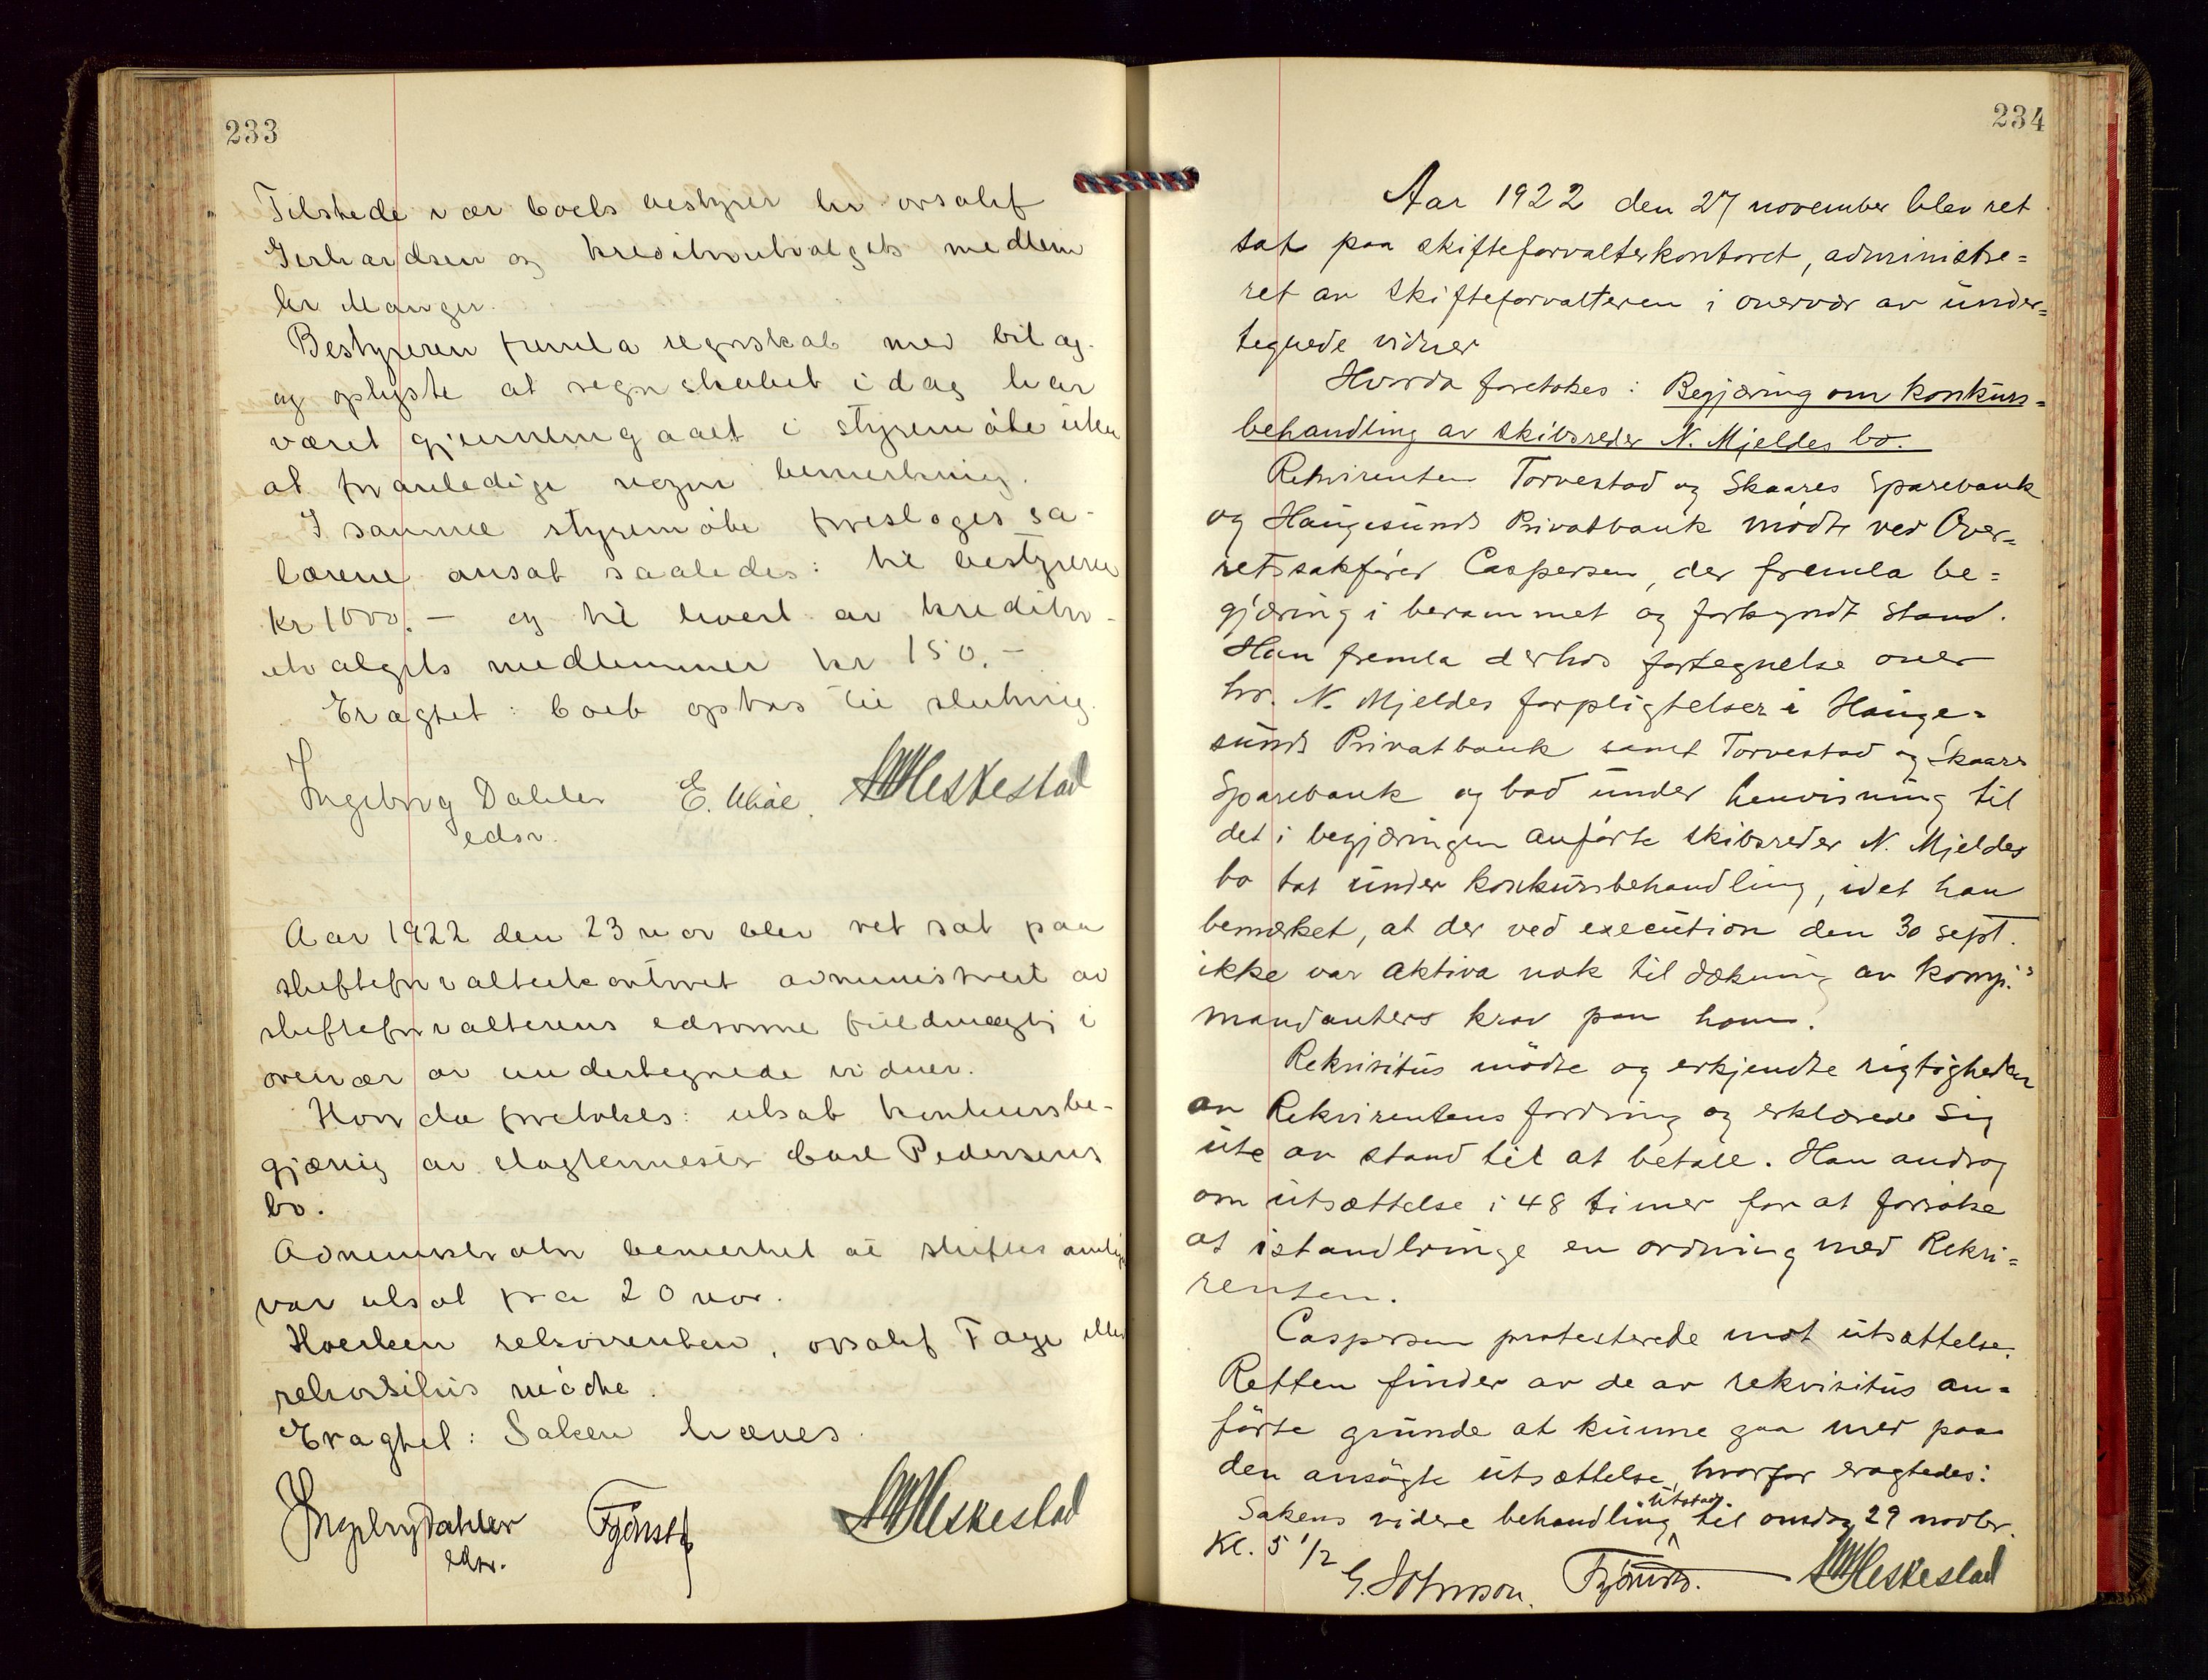 233
Tilstede var boets bestyrer hr orsakf
Gerhardsen og kreditorutvalgets medlem
hr Manger.
Bestyreren fremla regnskab med bilag
og oplyste at regnskabet idag har
været gjennemgaaet i styremøte uten
at foranledige nogen bemerkning.
I samme styremøte foresloges sa-
lærene ansat saaledes: til bestyreren
kr 1000.- og til hvert av kreditor-
utvalgets medlemmer kr 150.-
Eragtet: boet optas til slutning.
Ingeborg Dahler E. A. M. Heskestad
edsv.
Aar 1922 den 23 nov blev ret sat paa
skifteforvalterkontoret administreret av
skifteforvalterens edsvorne fuldmægtig i
overvær av undertegnede vidner.
Hvorda foretokes: utsat konkursbe-
gjæring av slagtermester Carl Pedersens
bo.
Administrator bemerket at skiftesamling
var utsat fra 20 nov.
Hverken rekvirenten, orsakf Fage eller
rekvisitus mødte.
Eragtet: Saken hæves.
Ingeborg Dahler Fjønstd A. M. Heskestad
edsv.
234
Aar 1922 den 27 november blev ret
sat paa skifteforvalterkontoret, administre=
ret av skifteforvalteren i overvær av under=
tegnede vidner
Hvorda foretokes: Begjæring om konkurs=
behandling av skibsreder N. Mjeldes bo.
Rekvirenten Torvestad og Skaares Sparebank
og Haugesunds Privatbank mødte ved Over=
retssakfører Caspersen, der fremla be=
gjæring i berammet og forkyndt stand.
Han fremla derhos fortegnelse over
hr. N. Mjeldes forpligtelser i Hauge=
sunds Privatbank samt Torvestad og Skaare
Sparebank og bad under henvisning til
det i begjæringen anførte skibsreder N. Mjeldes
bo tat under konkursbehandling, idet han
bemerket, at der ved execution den 30 sept.
ikke var aktiva nok til dækning av komp.s
mandanters krav paa ham.
Rekvisitus mødte og erkjendte rigtigheden
av Rekvirentens fordring og erklærede sig
ute av stand til at betale. Han androg
om utsættelse i 48 timer for at forsøke
at istandbringe en ordning med Rekvi=
renten.
Caspersen protesterede mot utsættelse.
Retten finder av de av rekvisitus an=
førte grunde at kunne gaa med paa
den ansøgte utsættelse, hvorfor eragtedes:
Sakens videre behandling utstaar til onsdag 29 novbr.
Kl. 5 1/2
G. Johnson. Fjønstd. A. M. Heskestad